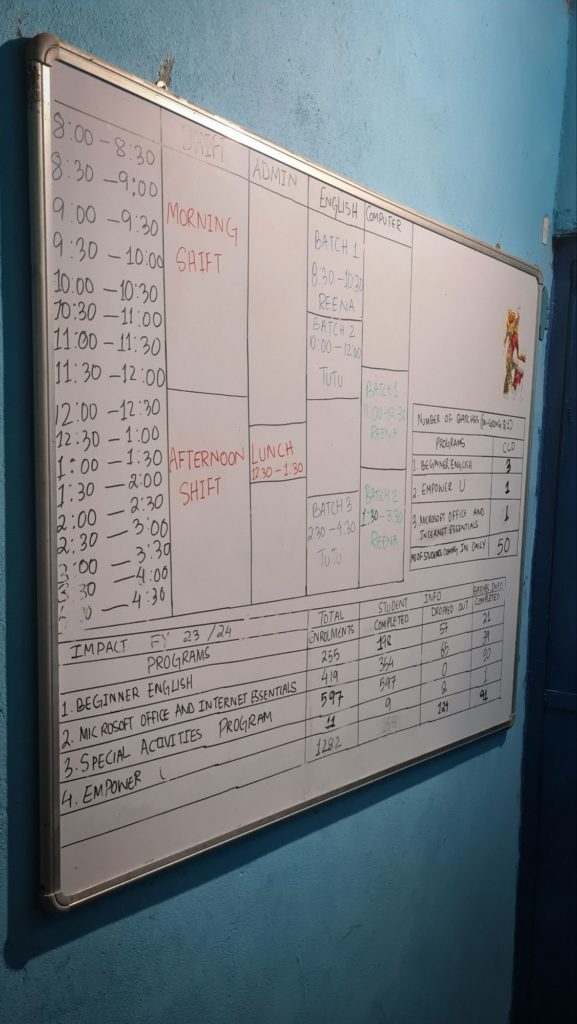 SHIFT
ADMIN
ENGLISH
COMPUTER
8:00 – 8:30
8:30 – 9:00
9:00 – 9:30
9:30 – 10:00
10:00 – 10:30
10:30 – 11:00
11:00 – 11:30
11:30 – 12:00
12:00 – 12:30
12:30 – 1:00
1:00 – 1:30
1:30 – 2:00
2:00 – 2:30
2:30 – 3:00
3:00 – 3:30
3:30 – 4:00
4:30
MORNING
SHIFT
AFTERNOON
SHIFT
LUNCH
12:30 – 1:30
BATCH 1
8:30 – 10:30
REENA
BATCH 2
10:00 – 12:00
TUTU
BATCH 3
2:30 – 4:30
TUTU
BATCH 1
11:00 – 12:30
REENA
BATCH 2
1:30 – 3:30
REENA
NUMBER OF BATCHES
PROGRAMS CLD
1. BEGINNER ENGLISH 3
2. EMPOWER U 1
3. MICROSOFT OFFICE AND 1
INTERNET ESSENTIALS
NO OF STUDENTS COMING IN DAILY 50
IMPACT FY 23/24
PROGRAMS
TOTAL ENROLMENTS
STUDENT INFO
COMPLETED
DROPPED OUT
BATCHES INFO
COMPLETED
1. BEGINNER ENGLISH 255 198 57 21
2. MICROSOFT OFFICE AND INTERNET ESSENTIALS 419 354 65 39
3. SPECIAL ACTIVITIES PROGRAM 597 597 0 30
4. EMPOWER 11 9 2 1
1282 124 91